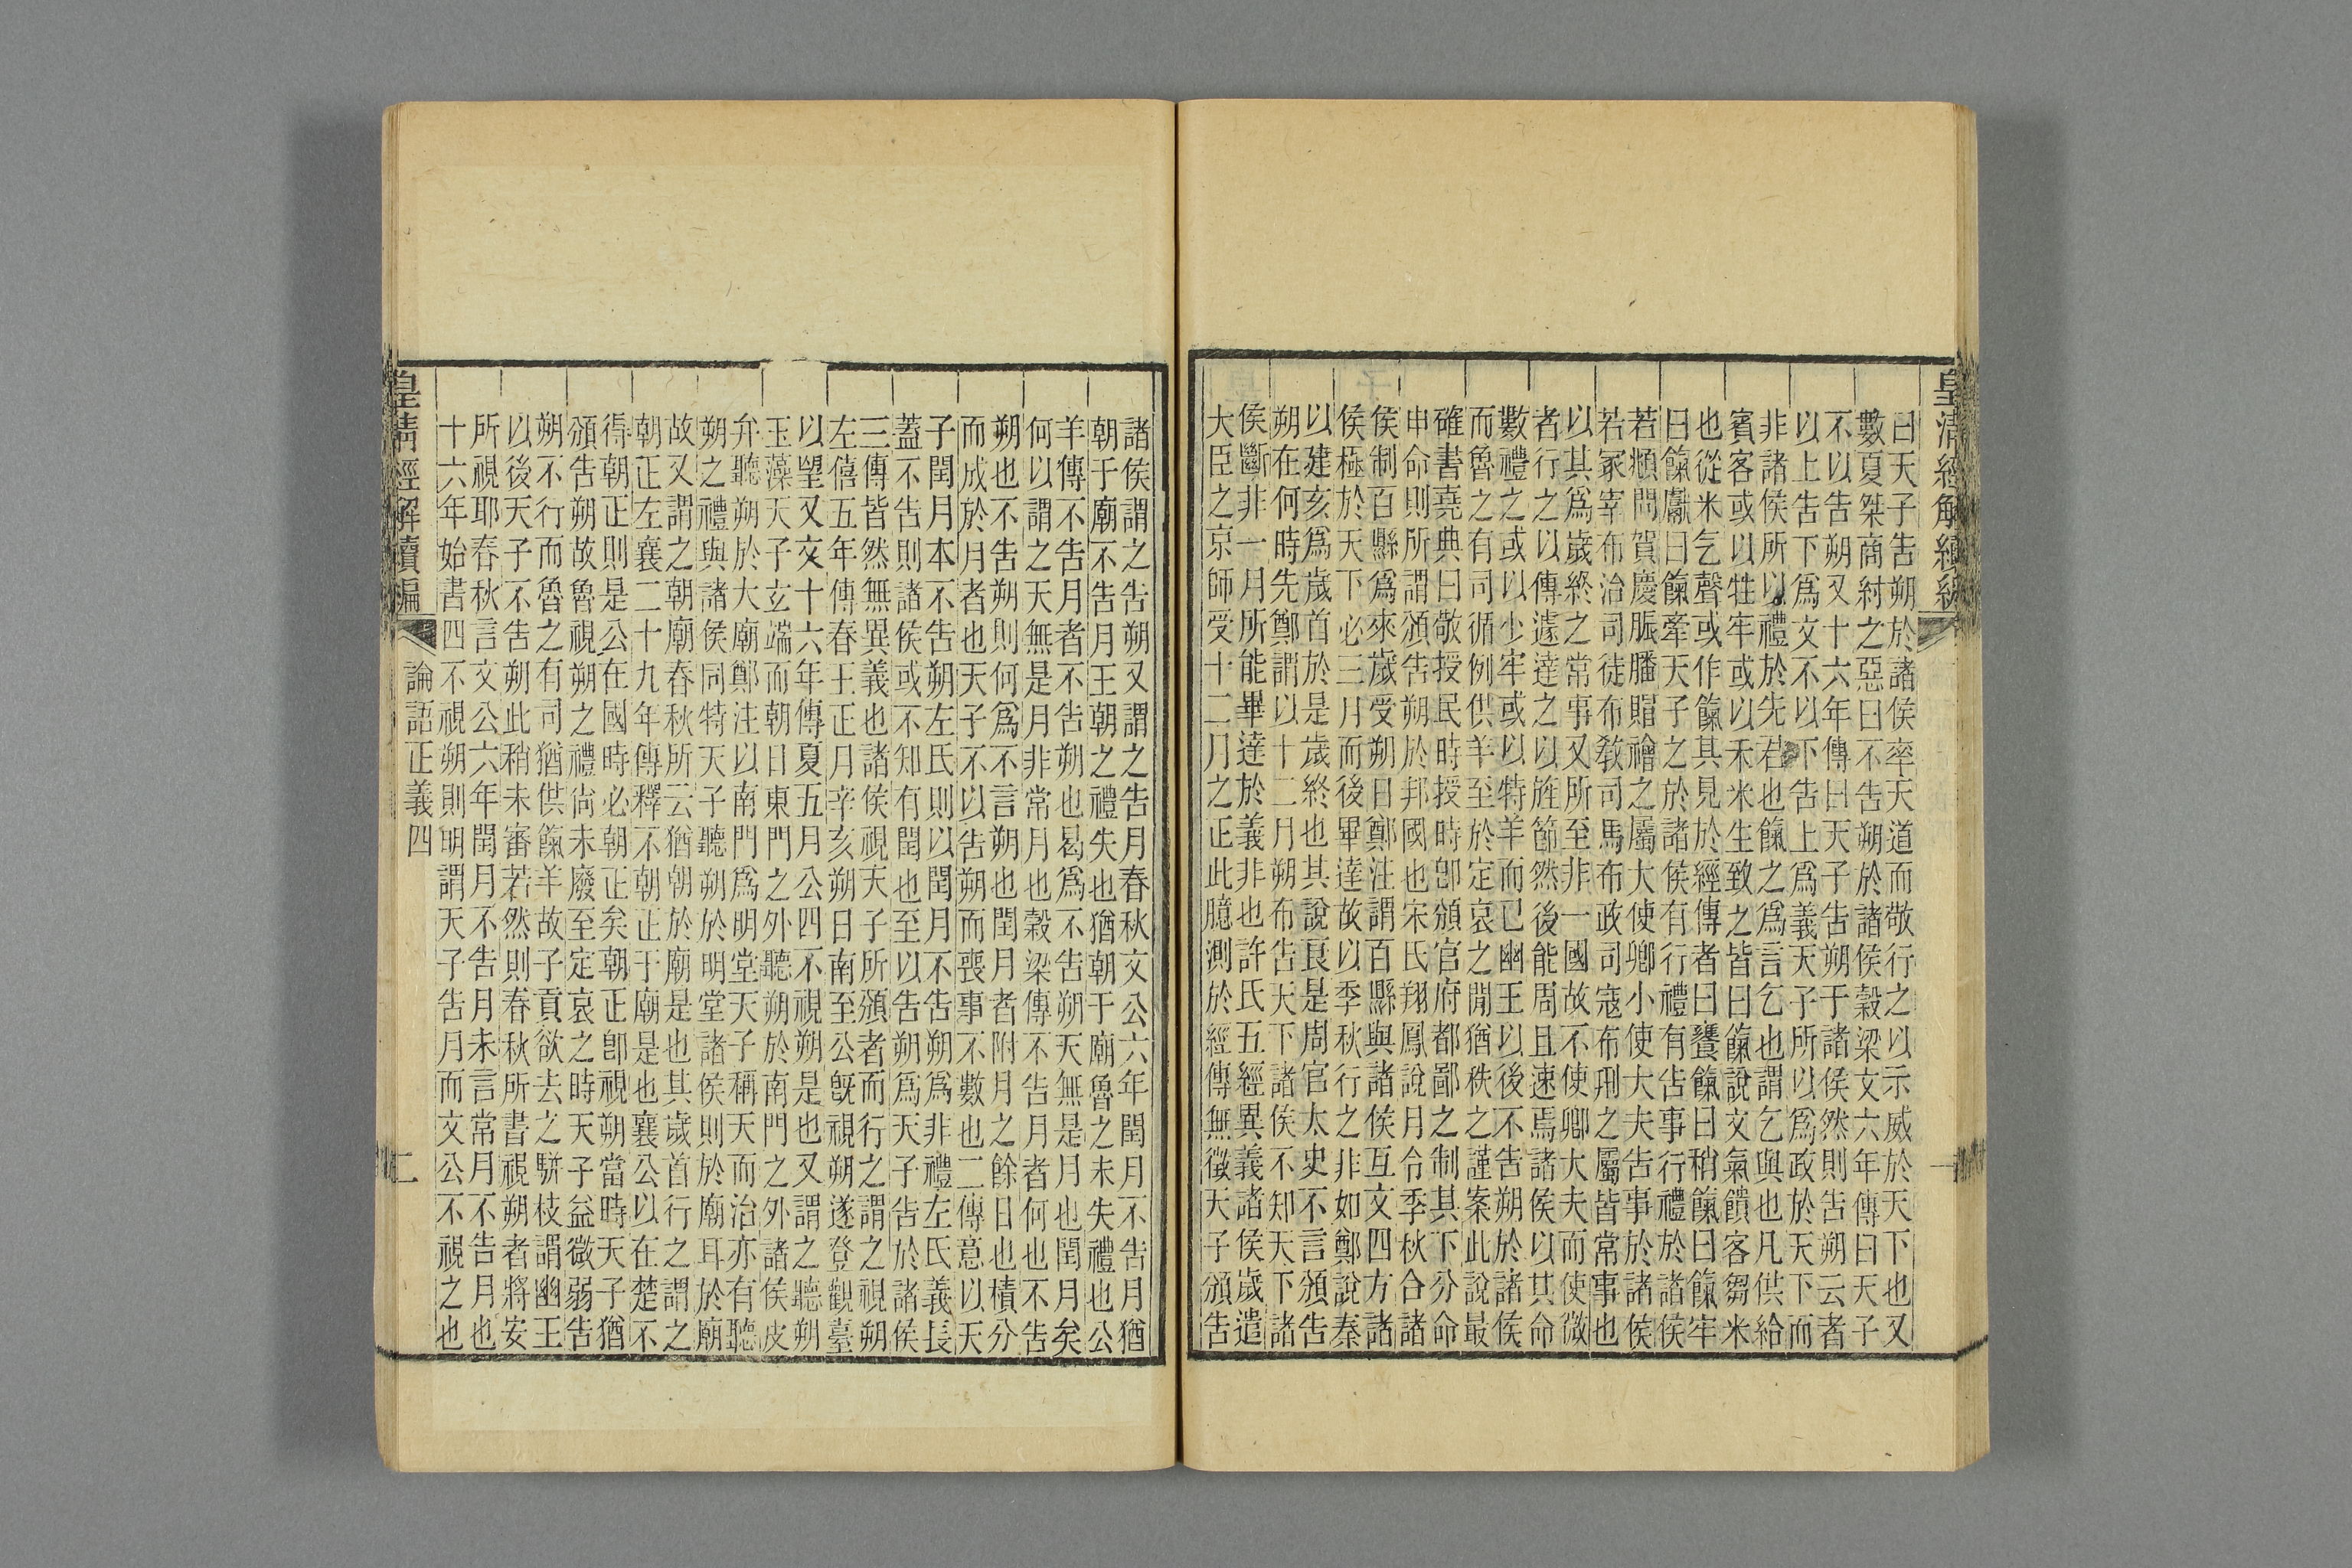 皇清經解續編
曰天子告朔於諸侯率天道而敬行之以示威於天下也又
數夏桀商紂之惡曰不告朔於諸侯穀梁文六年傳曰天子
不以告朔又十六年傳曰天子告朔于諸侯然則告朔云者
以上告下爲文不以下告上爲義天子所以爲政於天下而
非諸侯所以禮於先君也餼之爲言乞也謂乞與也凡供給
賓客或以牲牢或以禾米生致之皆曰餼說文氣饋客芻米
也從米乞聲或作餼其見於經傳者曰饔餼曰稍餼曰餼牢
曰餼獻曰餼牽天子之於諸侯有行禮有告事行禮於諸侯
若頫問賀慶脤膰賵禬之屬大使卿小使大夫告事於諸侯
若冢宰布治司徒布敎司馬布政司寇布刑之屬皆常事也
以其爲歲終之常事又所至非一國故不使卿大夫而使微
者行之以傳遽達之以旌節然後能周且速焉諸侯以其命
數禮之或以少牢或以特羊而已幽王以後不告朔於諸侯
而魯之有司循例供羊至於定哀之閒猶秩之謹案此說最
確書堯典曰敬授民時授時卽頒官府都鄙之制其下分命
申命則所謂頒告朔於邦國也宋氏翔鳳說月令季秋合諸
侯制百縣爲來歲受朔日鄭注謂百縣與諸侯互文四方諸
侯極於天下必三月而後畢達故以季秋行之非如鄭說秦
以建亥爲歲首於是歲終也其說良是周官太史不言頒告
朔在何時先鄭謂以十二月朔布告天下諸侯不知天下諸
侯斷非一月所能畢達於義非也許氏五經異義諸侯歲遣
大臣之京師受十二月之正此臆測於經傳無徵天子頒告
諸侯謂之告朔又謂之告月春秋文公六年閏月不告月猶
朝于廟不告月王朝之禮失也猶朝于廟魯之未失禮也公
羊傳不告月者不告朔也曷爲不告朔天無是月也閏月矣
何以謂之天無是月非常月也穀梁傳不告月者何也不告
朔也不告朔則何爲不言朔也閏月者附月之餘日也積分
而成於月者也天子不以告朔而喪事不數也二傳意以天
子閏月本不告朔左氏則以閏月不告朔爲非禮左氏義長
蓋不告則諸侯或不知有閏也至以告朔爲天子告於諸侯
三傳皆然無異義也諸侯視天子所頒者而行之謂之視朔
左僖五年傳春王正月辛亥朔日南至公旣視朔遂登觀臺
以望又文十六年傳夏五月公四不視朔是也又謂之聽朔
玉藻天子玄端而朝日東門之外聽朔於南門之外諸侯皮
弁聽朔於大廟鄭注以南門爲明堂天子稱天而治亦有聽
朔之禮與諸侯同特天子聽朔於明堂諸侯則於廟耳於廟
故又謂之朝廟春秋所云猶朝於廟是也其歲首行之謂之
朝正左襄二十九年傳釋不朝正于廟是也襄公以在楚不
得朝正則是公在國時必朝正矣朝正卽視朔當時天子猶
頒告朔故魯視朔之禮尙未廢至定哀之時天子益微弱告
朔不行而魯之有司猶供餼羊故子貢欲去之駢枝謂幽王
以後天子不告朔此稍未審若然則春秋所書視朔者將安
所視耶春秋言文公六年閏月不告月未言常月不告月也
十六年始書四不視朔則明謂天子告月而文公不視之也
皇清經解續編
論語正義四
二